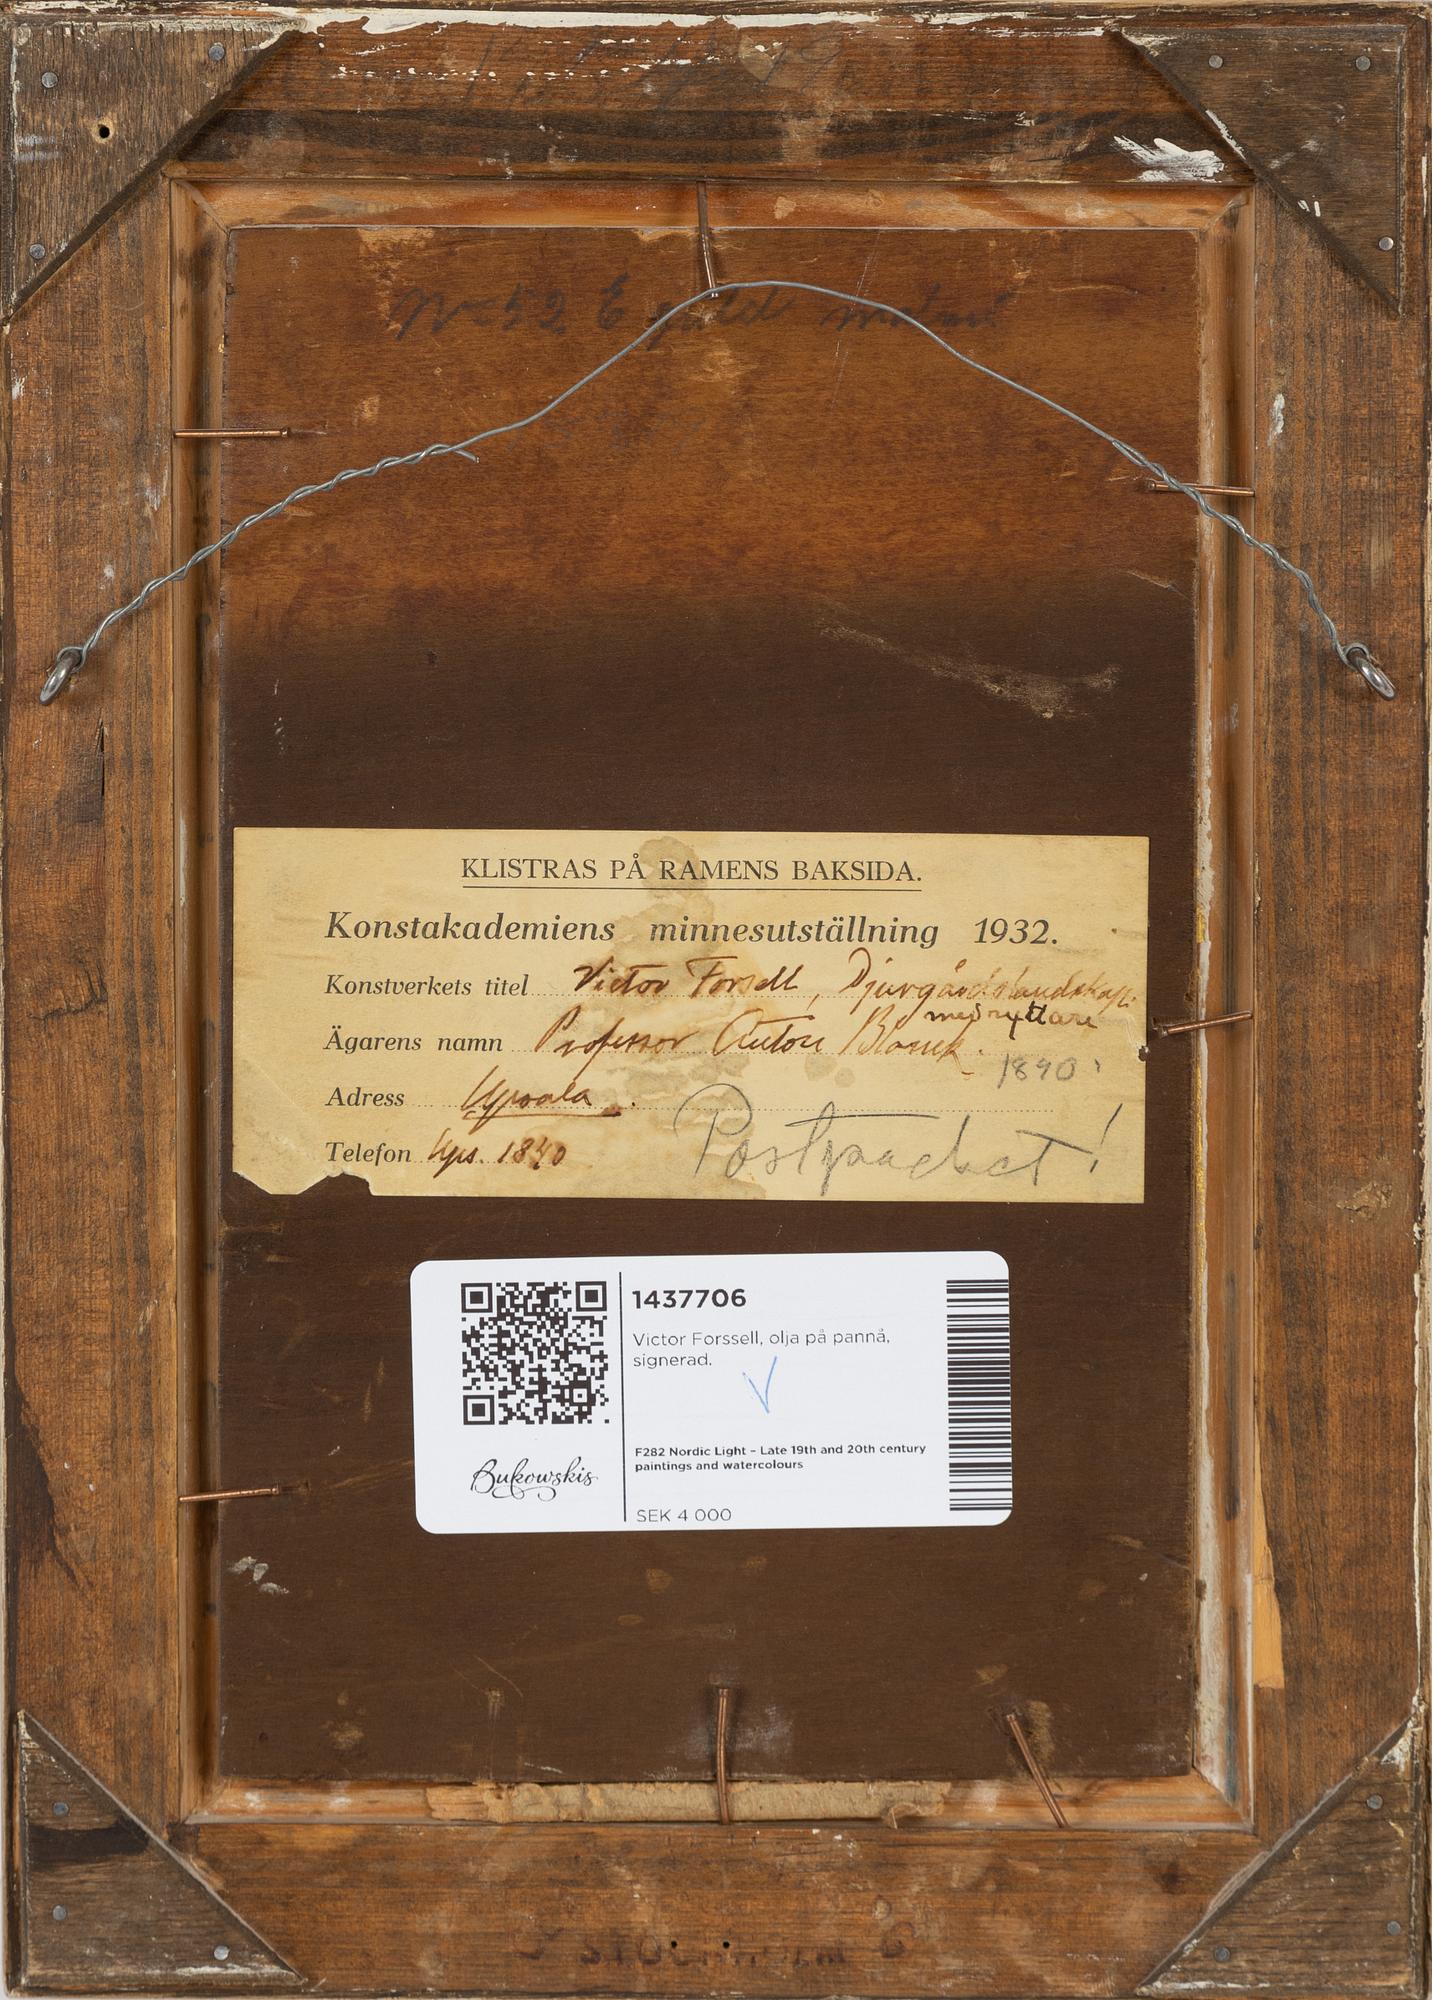 No 52 E
KLISTRAS PÅ RAMENS BAKSIDA.
Konstakademiens minnesutställning 1932.
Konstverkets titel Victor Forsell, Djurgårdslandskap.
med ryttare
Ägarens namn Professor Anton Blanck.
1890
Adress Upsala.
Telefon Ups. 1840 Postpacket!
1437706
Victor Forssell, olja på pannå,
signerad.
V
F282 Nordic Light – Late 19th and 20th century
paintings and watercolours
Bukowskis
SEK 4 000